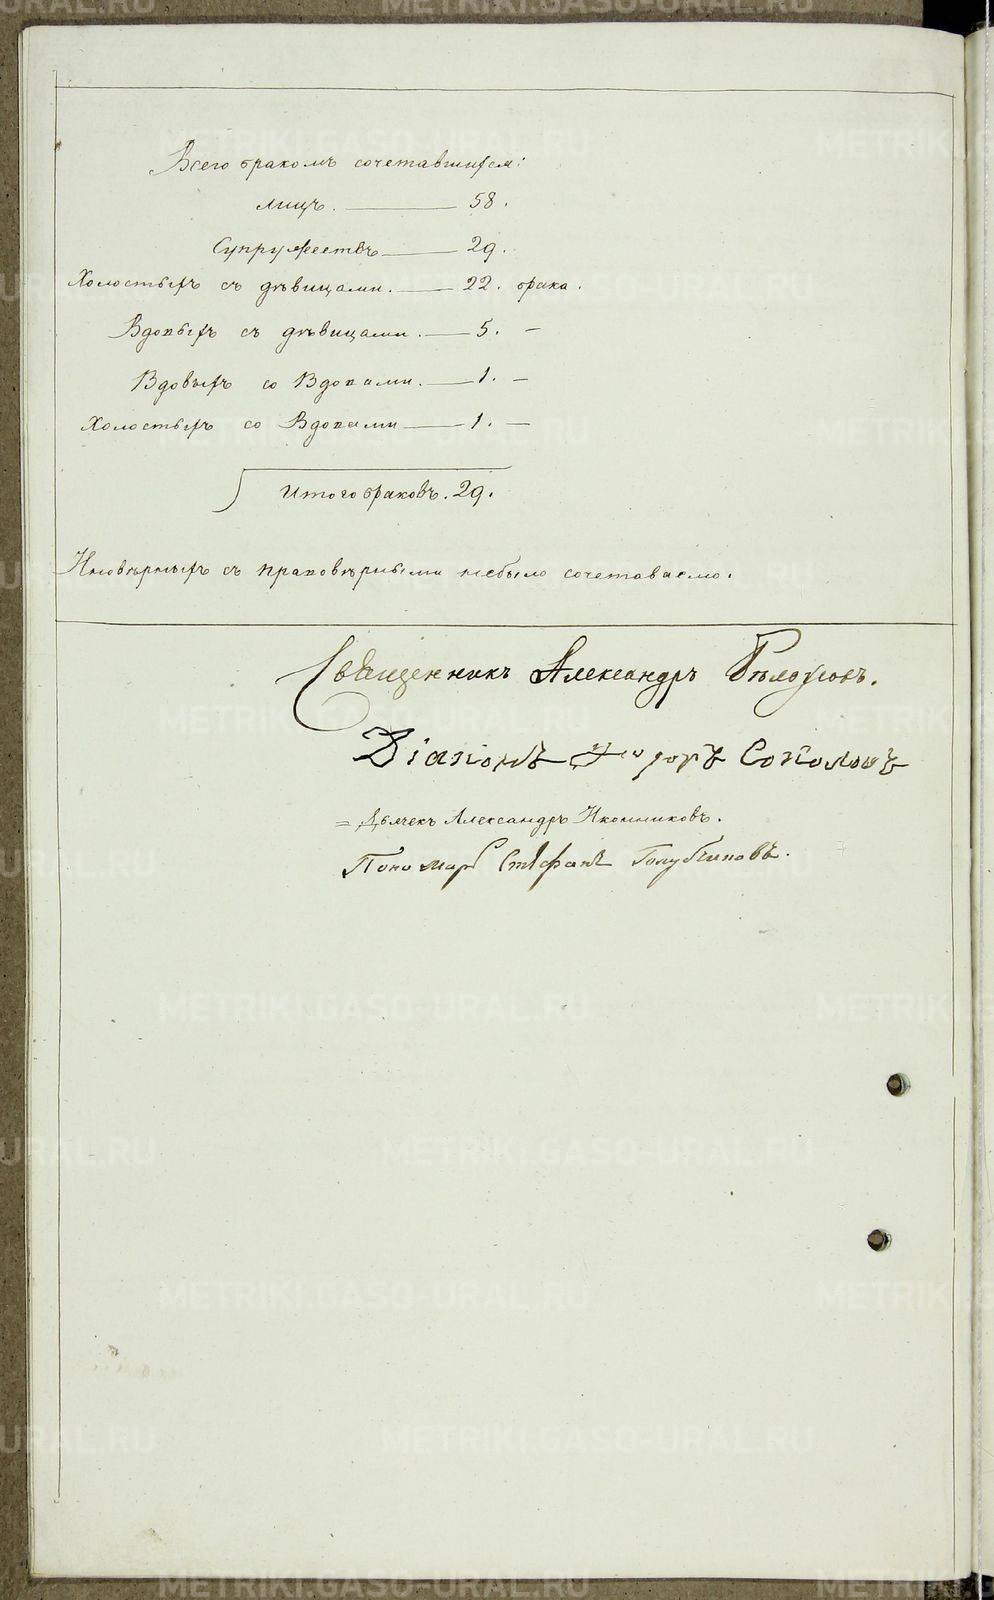 Всего бракомъ сочетавшихся:
лицъ. — 58.
Супружествъ — 29.
Холостыхъ съ дѣвицами. — 22. брака.
Вдовыхъ съ дѣвицами. — 5. —
Вдовыхъ со Вдовами. — 1. —
Холостыхъ со Вдовами — 1. —
Итого браковъ. 29.
Иновѣрныхъ съ правовѣрными небыло сочетаваемо.
Священникъ Александръ Бѣлоусовъ.
Діаконъ Ѳеодоръ Соколовъ
= Дьячекъ Александръ Иконниковъ.
Пономарь Стефанъ Голубчиковъ.
METRIKI.GASO-URAL.RU